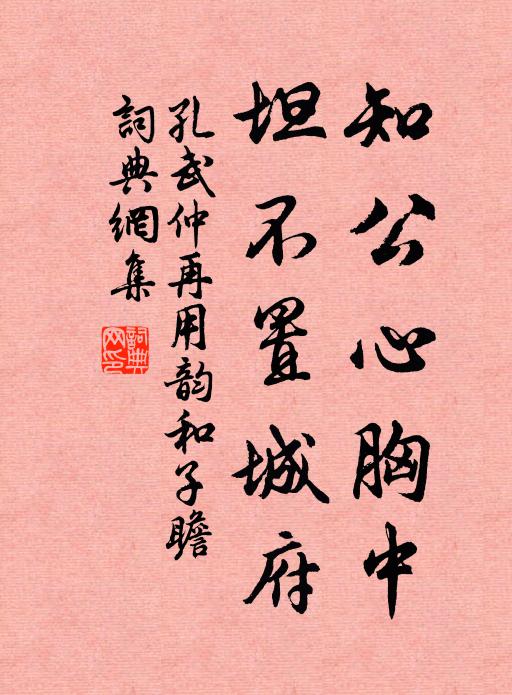 知公心胸中
坦不置城府
孔武仲再用韵和子瞻
詞典網集
詞典
网印